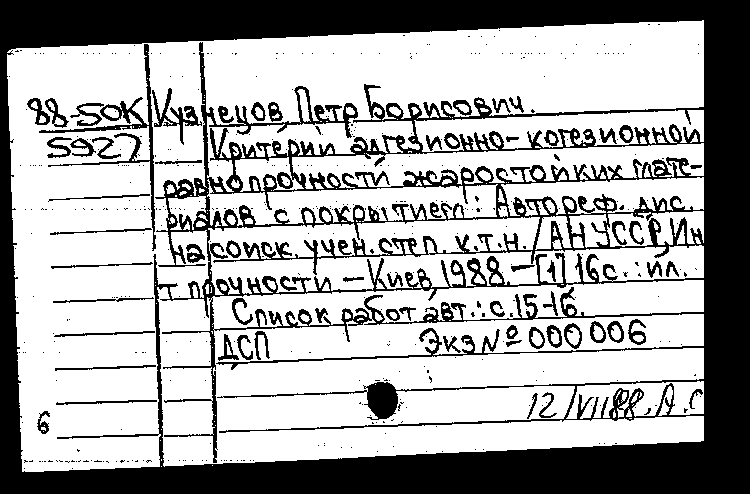 88-50К Кузнецов, Петр Борисович.
5927 Критерии адгезионно-когезионной
равнопрочности жаростойких мате-
риалов с покрытием: Автореф. дис.
на соиск. учен. степ. к.т.н. / АН УССР, Ин
т прочности. — Киев, 1988. — [1] 16 с. : ил.
Список работ авт.: с. 15-16.
ДСП Экз № 000 006
12/VII 88. А. С
6